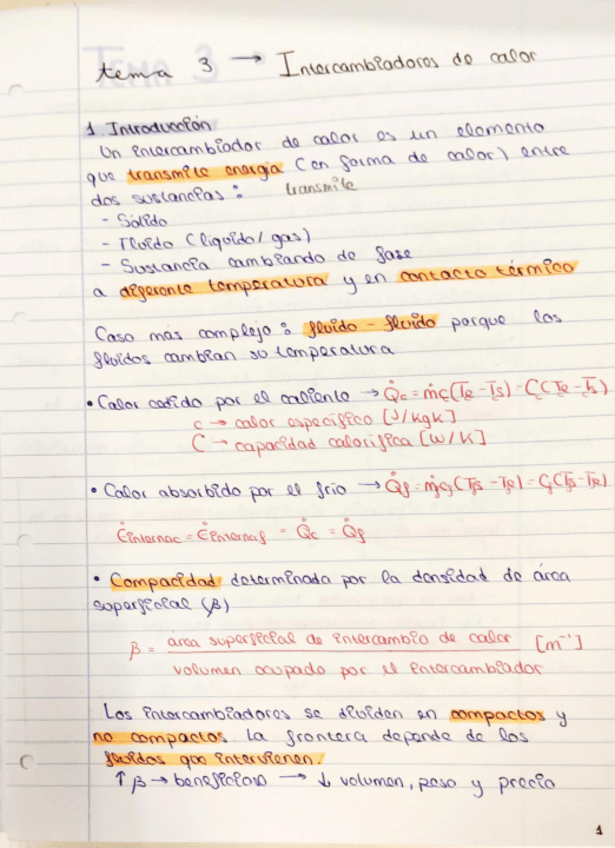 tema 3 → Intercambiadores de calor
1 Introducción
Un intercambiador de calor es un elemento
que transmite energía (en forma de calor) entre
dos sustancias: transmite
- Sólido
- Fluido (líquido/gas)
- Sustancia cambiando de fase
a diferente temperatura y en contacto térmico
Caso más complejo: fluido - fluido porque los
fluidos cambian su temperatura
• Calor cedido por el caliente → Q̇c = ṁc(Te - Ts) = C(Te - Ts)
c → calor específico [J/kgK]
C → capacidad calorífica [W/K]
• Calor absorbido por el frío → Q̇f = ṁfcf(Tfs - Tfe) = Cf(Tfs - Tfe)
Ėinternac = Ėinternaf = Q̇c = Q̇f
• Compacidad determinada por la densidad de área
superficial (β)
β = área superficial de intercambio de calor [m⁻¹]
volumen ocupado por el intercambiador
Los intercambiadores se dividen en compactos y
no compactos. La frontera depende de los
fluidos que intervienen.
↑ β → beneficioso → ↓ volumen, peso y precio
1